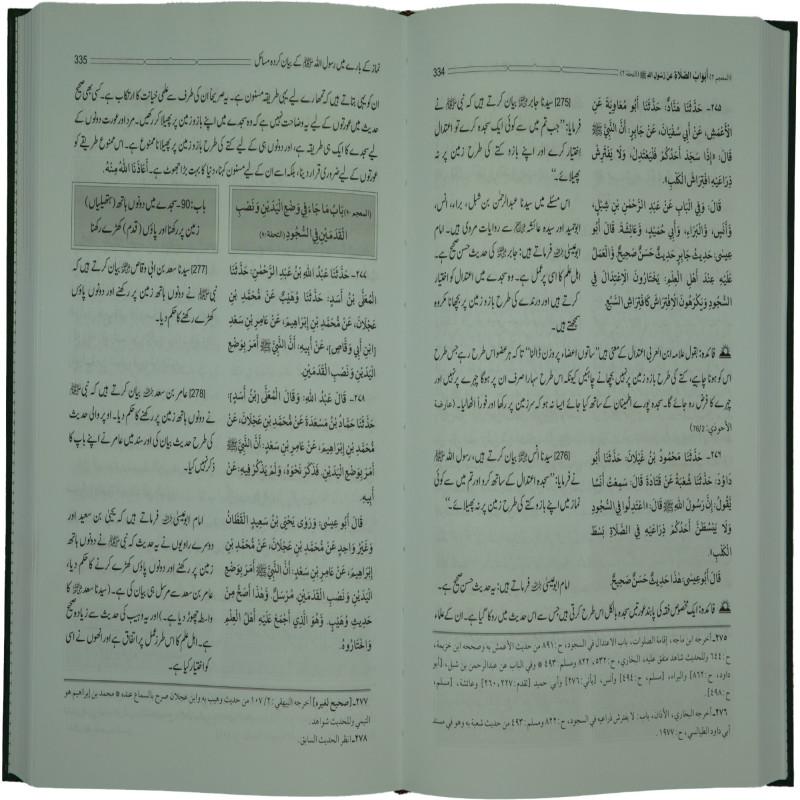 (المعجم ٢) أبواب الصلاة عن رسول الله ﷺ (التحفة ٢)
334
٢٧٥- حَدَّثَنَا هَنَّادٌ: حَدَّثَنَا أَبُو مُعَاوِيَةَ عَنِ
الْأَعْمَشِ، عَنْ أَبِي سُفْيَانَ، عَنْ جَابِرٍ: أَنَّ النَّبِيَّ ﷺ
قَالَ: «إِذَا سَجَدَ أَحَدُكُمْ فَلْيَعْتَدِلْ، وَلَا يَفْتَرِشْ
ذِرَاعَيْهِ افْتِرَاشَ الْكَلْبِ».
[275] سیدنا جابر ؓ بیان کرتے ہیں کہ نبی ﷺ نے
فرمایا: ”جب تم میں سے کوئی ایک سجدہ کرے تو اعتدال
اختیار کرے اور اپنے بازو کتے کی طرح زمین پر نہ
پھیلائے۔“
قَالَ: وَفِي الْبَابِ عَنْ عَبْدِ الرَّحْمٰنِ بْنِ شِبْلٍ،
وَأَنَسٍ، وَالْبَرَاءِ، وَأَبِي حُمَيْدٍ، وَعَائِشَةَ. قَالَ أَبُو
عِيسَى: حَدِيثُ جَابِرٍ حَدِيثٌ حَسَنٌ صَحِيحٌ وَالْعَمَلُ
عَلَيْهِ عِنْدَ أَهْلِ الْعِلْمِ: يَخْتَارُونَ الْاِعْتِدَالَ فِي
السُّجُودِ وَيَكْرَهُونَ الْاِفْتِرَاشَ كَافْتِرَاشِ السَّبُعِ.
اس مسئلے میں سیدنا عبدالرحمٰن بن شبل، براء، انس،
ابو حمید اور سیدہ عائشہ ؓ سے روایات مروی ہیں۔ امام
ابو عیسیٰ فرماتے ہیں: جابر ؓ کی حدیث حسن صحیح ہے۔
اہل علم کا اسی پر عمل ہے۔ وہ سجدے میں اعتدال کو اختیار
کرتے ہیں اور درندے کی طرح بازو زمین پر بچھانا مکروہ
سمجھتے ہیں۔
فائدہ: بقول علامہ ابن العربی اعتدال کے معنی ہیں ”ساتوں اعضاء پر وزن ڈالنا“ تاکہ ہر عضو اس طرح رہے جس طرح
اس کو ہونا چاہیے، کتے کی طرح بازو زمین پر نہیں بچھانے چاہئیں کیونکہ اس طرح سہارا صرف ان پر ہوگا چہرے پر نہیں اور
چہرے کا فرض رہ جائے گا۔ سجدہ پورے اطمینان کے ساتھ کیا جائے ایسا نہ ہو کہ سر زمین پر رکھا اور فوراً اٹھا لیا۔ (عارضة
الأحوذي: 76/2)
٢٧٦- حَدَّثَنَا مَحْمُودُ بْنُ غَيْلَانَ: حَدَّثَنَا أَبُو
دَاوُدَ: حَدَّثَنَا شُعْبَةُ عَنْ قَتَادَةَ قَالَ: سَمِعْتُ أَنَسًا
يَقُولُ: إِنَّ رَسُولَ اللهِ ﷺ قَالَ: «اعْتَدِلُوا فِي السُّجُودِ
وَلَا يَبْسُطَنَّ أَحَدُكُمْ ذِرَاعَيْهِ فِي الصَّلَاةِ بَسْطَ
الْكَلْبِ».
[276] سیدنا انس ؓ بیان کرتے ہیں، رسول اللہ ﷺ
نے فرمایا: ”سجدہ اعتدال کے ساتھ کرو اور تم میں سے کوئی
نماز میں اپنے بازو کتے کی طرح زمین پر نہ پھیلائے۔“
قَالَ أَبُو عِيسَى: هٰذَا حَدِيثٌ حَسَنٌ صَحِيحٌ
امام ابو عیسیٰ فرماتے ہیں: یہ حدیث حسن صحیح ہے۔
فائدہ: ایک مخصوص فقہ کی پابند عورتیں سجدہ بالکل اس طرح کرتی ہیں جس سے اس حدیث میں روکا گیا ہے۔ ان کے علماء
٢٧٥- أخرجه ابن ماجه، إقامة الصلوات، باب الاعتدال في السجود، ح: ٨٩١ من حديث الأعمش به وصححه ابن خزيمة،
ح: ٦٤٤ وللحديث شاهد متفق عليه، البخاري، ح: ٥٣٢، ٨٢٢ ومسلم: ٤٩٣ * وفي الباب عن عبدالرحمن بن شبل، [أبو
داود، ح: ٨٦٢] والبراء، [مسلم، ح: ٤٩٤] وأنس، [يأتي: ٢٧٦] وأبي حميد [تقدم: ٢٢٧، ٢٦٠] وعائشة، [مسلم،
ح: ٤٩٨].
٢٧٦- أخرجه البخاري، الأذان، باب: لا يفترش ذراعيه في السجود، ح: ٨٢٢ ومسلم: ٤٩٣ من حديث شعبة به وهو في مسند
أبي داود الطيالسي، ح: ١٩٧٧.
نماز کے بارے میں رسول اللہ ﷺ کے بیان کردہ مسائل
335
ان کو یہی بتاتے ہیں کہ تمھارے لیے یہی طریقہ مسنون ہے۔ یہ صریحاً ان کی طرف سے علمی خیانت کا ارتکاب ہے۔ کسی بھی صحیح
حدیث میں عورتوں کے لیے یہ وضاحت نہیں ہے کہ وہ سجدے میں اپنے بازو زمین پر پھیلا کر رکھیں۔ مرد اور عورت دونوں کے
لیے سجدے کا ایک ہی طریقہ ہے، اور دونوں ہی کے لیے کتے کی طرح بازو زمین پر پھیلانا ممنوع ہے۔ اس ممنوع طریقے کو
عورتوں کے لیے ضروری قرار دینا، بلکہ اسے ان کے لیے مسنون کہنا، دنیا کا بہت بڑا جھوٹ ہے۔ أَعَاذَنَا اللهُ مِنْهُ.
(المعجم ٩٠) بَابُ مَا جَاءَ فِي وَضْعِ الْيَدَيْنِ وَنَصْبِ
الْقَدَمَيْنِ فِي السُّجُودِ (التحفة ٩٠)
باب: 90- سجدے میں دونوں ہاتھ (ہتھیلیاں)
زمین پر رکھنا اور پاؤں (قدم) کھڑے رکھنا
٢٧٧- حَدَّثَنَا عَبْدُ اللهِ بْنُ عَبْدِ الرَّحْمٰنِ: حَدَّثَنَا
الْمُعَلَّى بْنُ أَسَدٍ: حَدَّثَنَا وُهَيْبٌ عَنْ مُحَمَّدِ بْنِ
عَجْلَانَ، عَنْ مُحَمَّدِ بْنِ إِبْرَاهِيمَ، عَنْ عَامِرِ بْنِ سَعْدِ
[ابْنِ أَبِي وَقَّاصٍ]، عَنْ أَبِيهِ: أَنَّ النَّبِيَّ ﷺ أَمَرَ بِوَضْعِ
الْيَدَيْنِ وَنَصْبِ الْقَدَمَيْنِ.
[277] سیدنا سعد بن ابی وقاص ؓ بیان کرتے ہیں کہ
نبی ﷺ نے دونوں ہاتھ زمین پر رکھنے اور دونوں پاؤں
کھڑے رکھنے کا حکم دیا۔
٢٧٨- قَالَ عَبْدُ اللهِ: وَقَالَ الْمُعَلَّى [بْنُ أَسَدٍ]:
حَدَّثَنَا حَمَّادُ بْنُ مَسْعَدَةَ عَنْ مُحَمَّدِ بْنِ عَجْلَانَ، عَنْ
مُحَمَّدِ بْنِ إِبْرَاهِيمَ، عَنْ عَامِرِ بْنِ سَعْدٍ: أَنَّ النَّبِيَّ ﷺ
أَمَرَ بِوَضْعِ الْيَدَيْنِ. فَذَكَرَ نَحْوَهُ، وَلَمْ يَذْكُرْ فِيهِ: عَنْ
أَبِيهِ.
[278] عامر بن سعد ؒ بیان کرتے ہیں کہ نبی ﷺ
نے دونوں ہاتھ زمین پر رکھنے کا حکم دیا۔ اوپر والی حدیث
کی طرح حدیث بیان کی اور سند میں عامر نے اپنے باپ کا
ذکر نہیں کیا۔
قَالَ أَبُو عِيسَى: وَرَوَى يَحْيَى بْنُ سَعِيدٍ الْقَطَّانُ
وَغَيْرُ وَاحِدٍ عَنْ مُحَمَّدِ بْنِ عَجْلَانَ، عَنْ مُحَمَّدِ بْنِ
إِبْرَاهِيمَ، عَنْ عَامِرِ بْنِ سَعْدٍ: أَنَّ النَّبِيَّ ﷺ أَمَرَ بِوَضْعِ
الْيَدَيْنِ وَنَصْبِ الْقَدَمَيْنِ. مُرْسَلٌ. وَهٰذَا أَصَحُّ مِنْ
حَدِيثِ وُهَيْبٍ. وَهُوَ الَّذِي أَجْمَعَ عَلَيْهِ أَهْلُ الْعِلْمِ
وَاخْتَارُوهُ.
امام ابو عیسیٰ ؒ فرماتے ہیں کہ یحییٰ بن سعید اور
دوسرے راویوں نے یہ حدیث کہ نبی ﷺ نے دونوں ہاتھ
زمین پر رکھنے اور دونوں پاؤں کھڑے کرنے کا حکم دیا،
عامر بن سعد سے مرسل ہی بیان کی ہے۔ (سیدنا سعد ؓ کا
واسطہ چھوڑ دیا ہے۔) اور یہ وہیب کی حدیث سے زیادہ صحیح
ہے۔ اہل علم کا اس طرز عمل پر اتفاق ہے اور انھوں نے اسی
کو اختیار کیا ہے۔
٢٧٧- [صحيح لغيره] أخرجه البيهقي: ٢/ ١٠٧ من حديث وهيب به وابن عجلان صرح بالسماع عنده * محمد بن إبراهيم هو
التيمي وللحديث شواهد.
٢٧٨- انظر الحديث السابق.